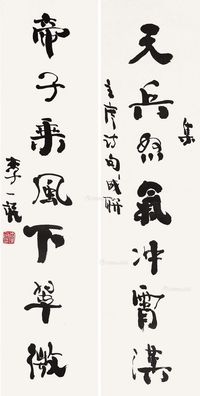 天兵怒氣冲霄漢
集
主席詩句成聯
帝子乘風下翠微
李一氓